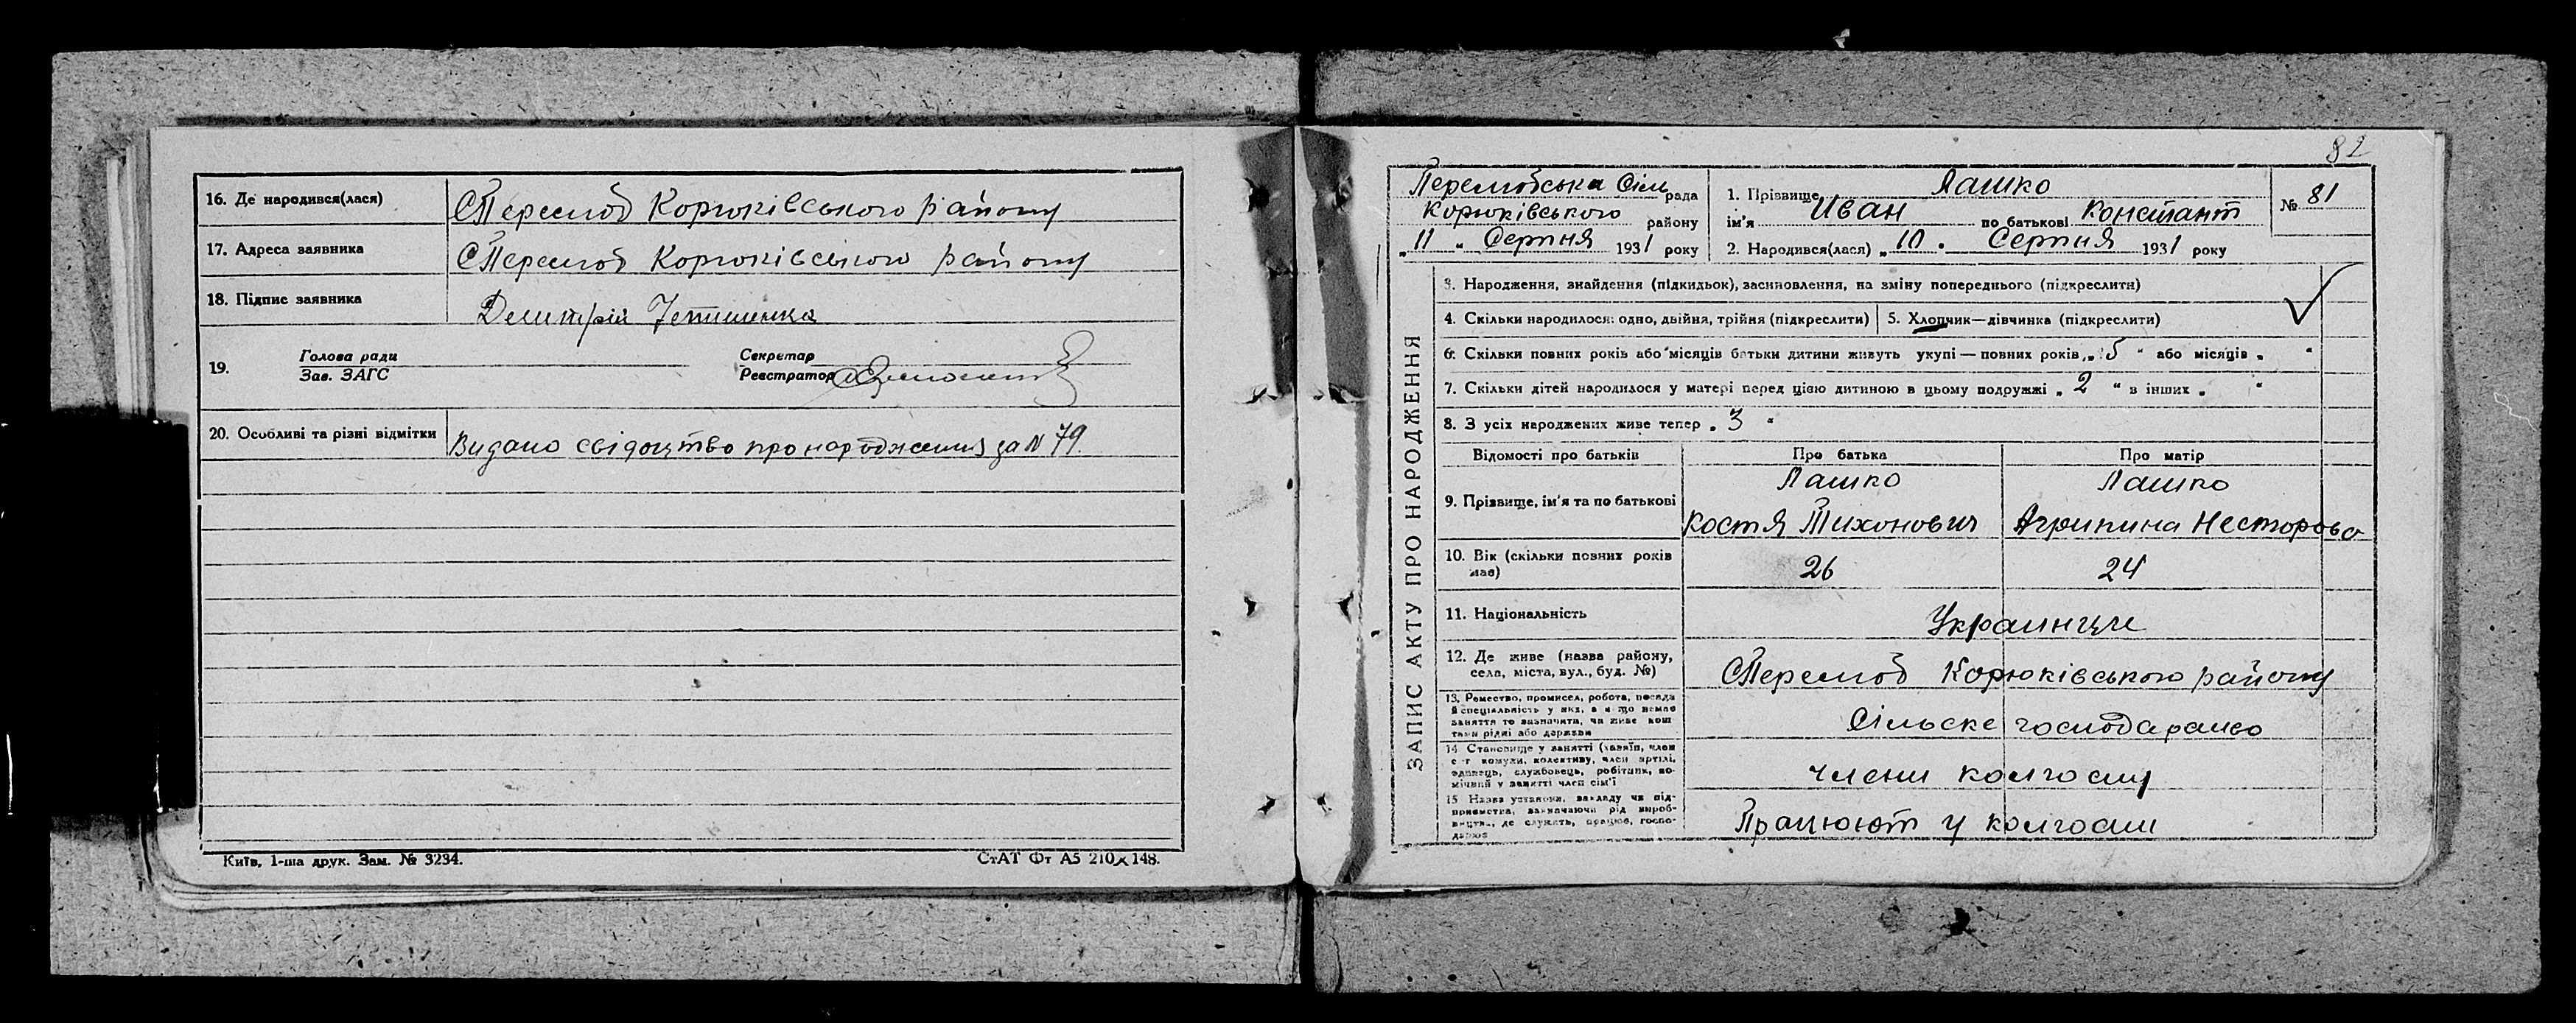 16. Де народився(лася) С Перелюб Корюківського району
17. Адреса заявника С Перелюб Корюківського району
18. Підпис заявника Демитрій
19. Голова ради
Зав. ЗАГС
Секретар
Реєстратор
20. Особливі та різні відмітки Видано свідоцтво про народження за N 79.
Київ, 1-ша друк. Зам. № 3234.
СтАТ Фт А5 210×148.
82
Перелюбська Сіль рада
Корюківського району
„ 11 „ Серпня 1931 року
1. Прізвище Лашко
ім'я Иван по батькові Констант
2. Народився(лася) „ 10 „ Серпня 1931 року
№ 81
ЗАПИС АКТУ ПРО НАРОДЖЕННЯ
3. Народження, знайдення (підкидьок), засиновлення, на зміну попереднього (підкреслити)
4. Скільки народилося: одно, двійня, трійня (підкреслити)
5. Хлопчик—дівчинка (підкреслити)
6. Скільки повних років або місяців батьки дитини живуть укупі — повних років „ 5 “ або місяців „ “
7. Скільки дітей народилося у матері перед цією дитиною в цьому подружжі „ 2 “ в інших „ “
8. З усіх народжених живе тепер „ 3 “
Відомості про батьків Про батька Про матір
9. Прізвище, ім'я та по батькові
Лашко Лашко
Костя Тихонович Агрипина Несторова
10. Вік (скільки повних років має) 26 24
11. Національність Украинци
12. Де живе (назва району,
села, міста, вул., буд. №)
С Перелюб Корюківського району
13. Ремество, промисел, робота, посада
й спеціяльність у них, а якщо немає
заняття то зазначити, чи живе кош
тами рідні або держави
Сільске господарство
14. Становище у занятті (хазяїн, член
с-г комуни, колективу, член артілі,
одинець, службовець, робітник, по-
мічний у занятті член сім'ї
члени колгоспу
15. Назва установи, закладу чи під-
приємства, зазначаючи рід вироб-
ництв., де служить, працює, госпо-
дарює
Працюют у колгоспі